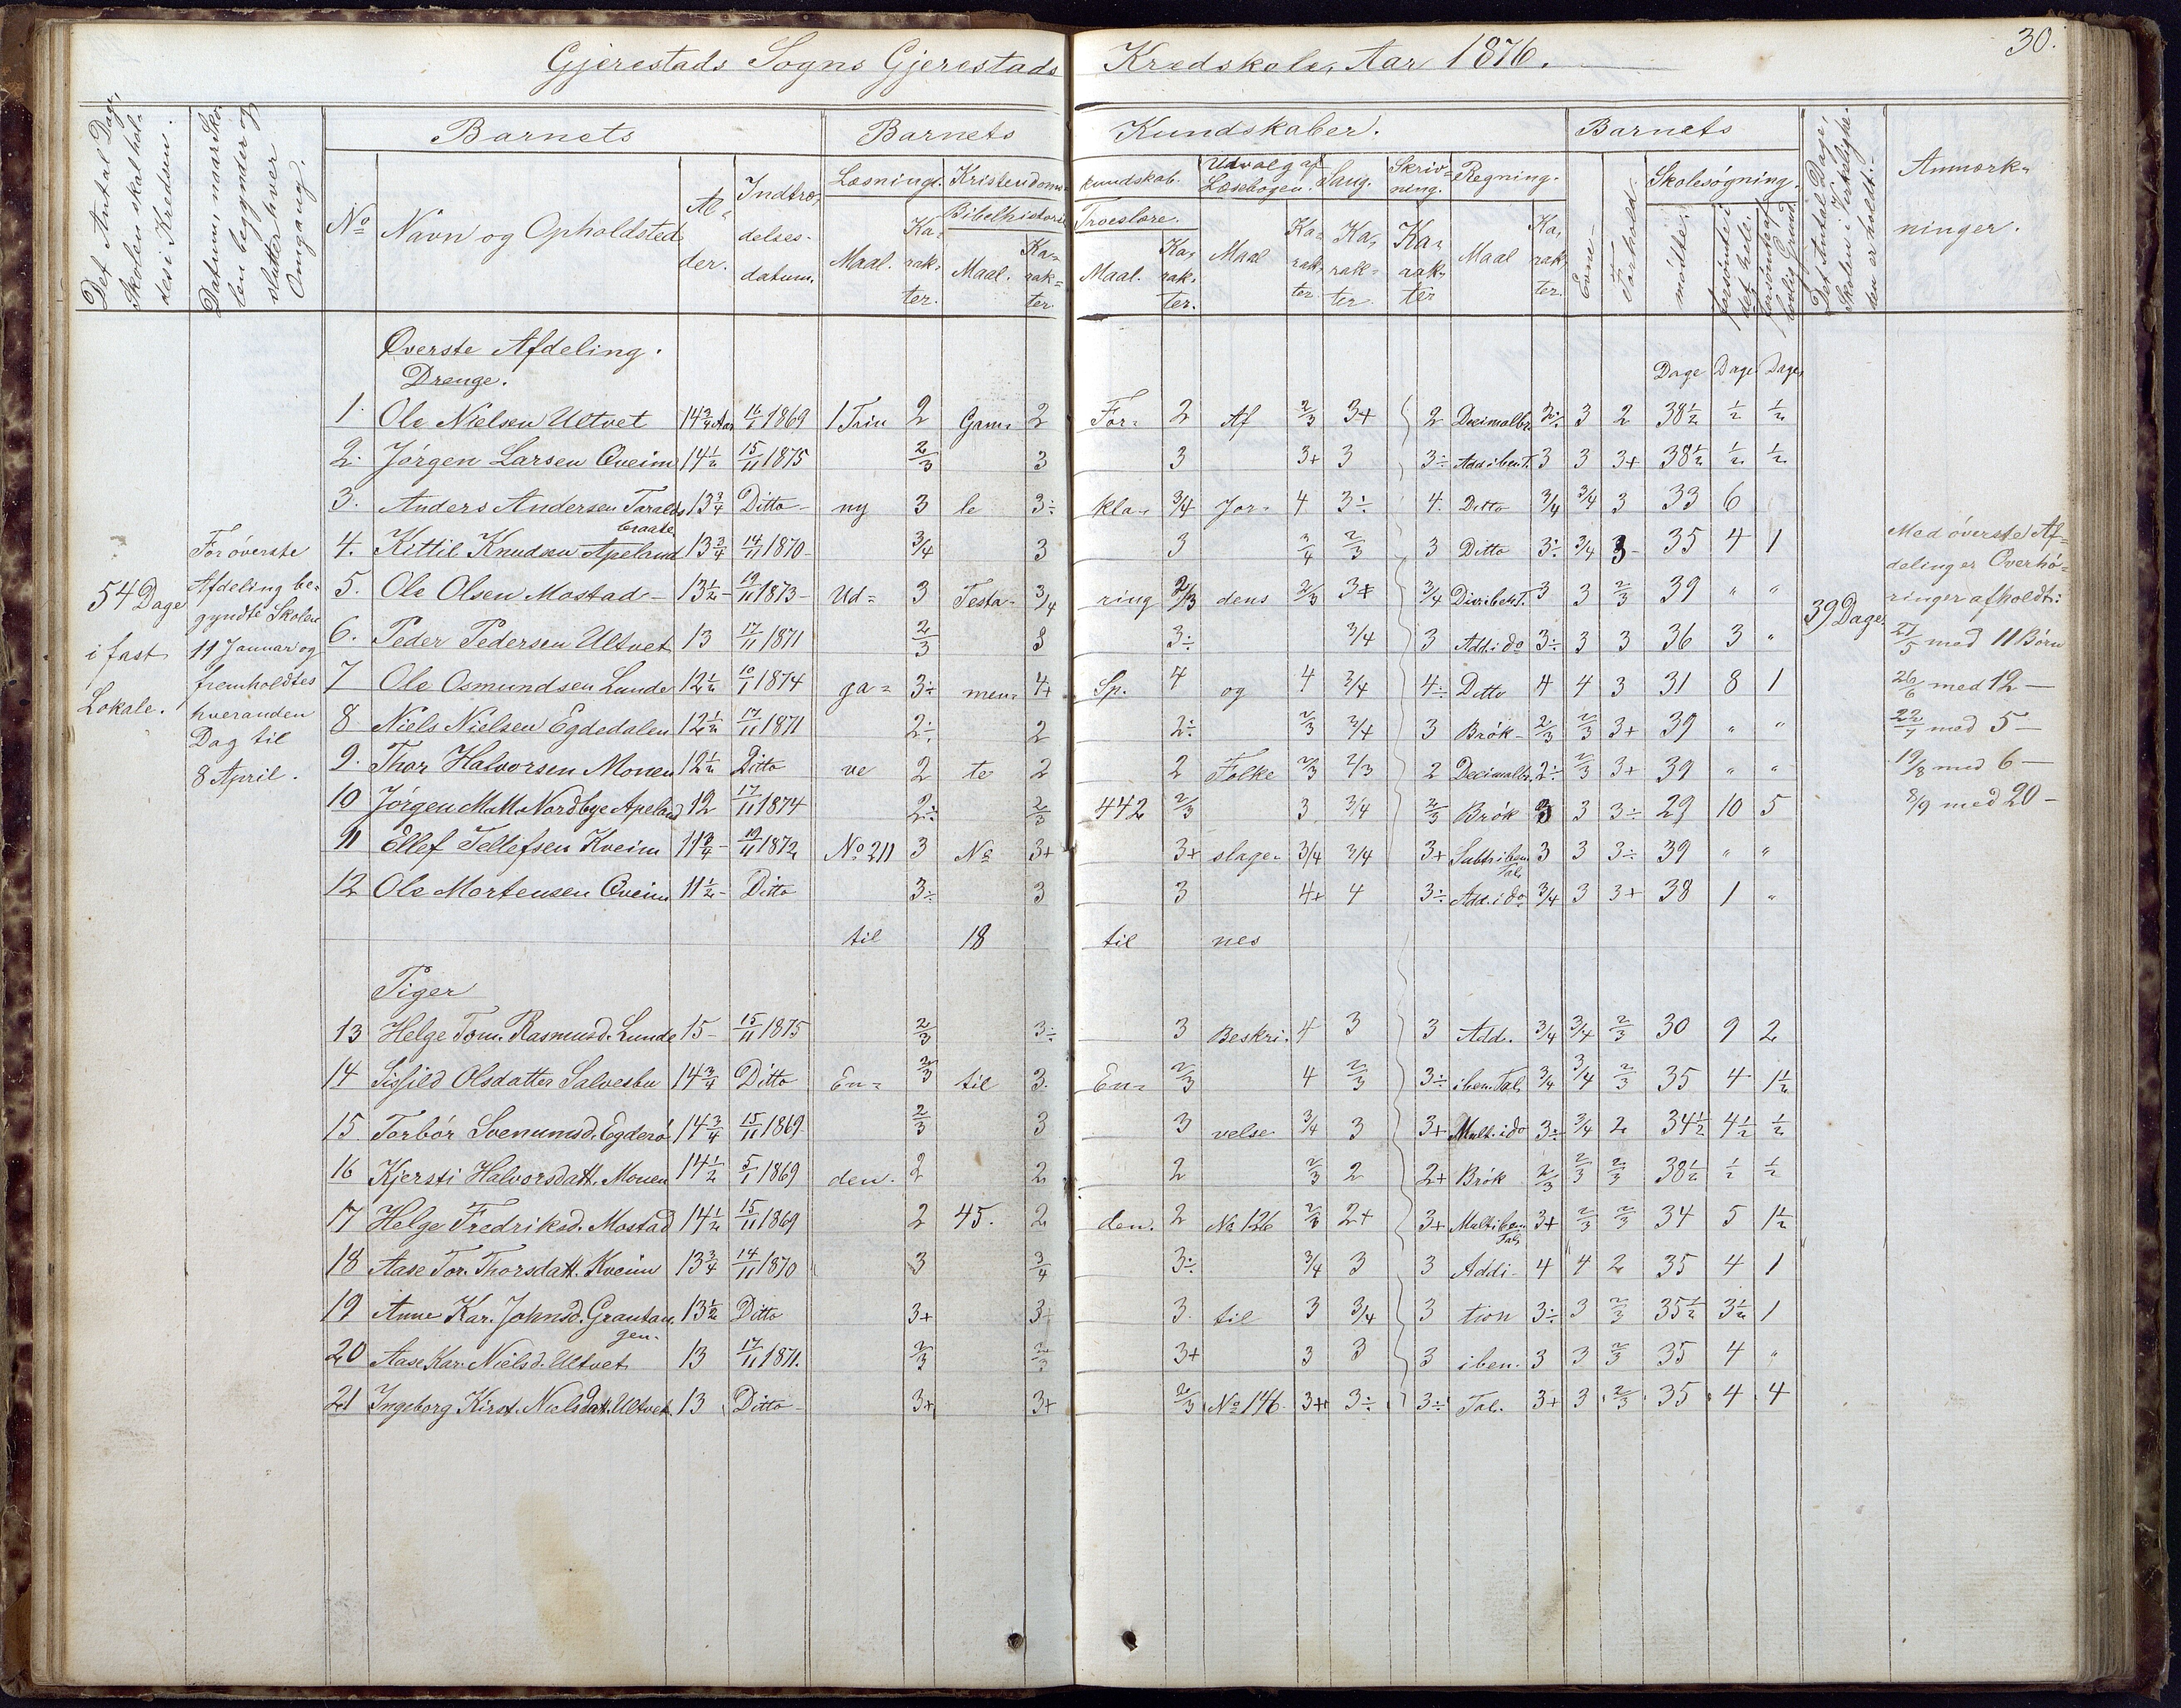 Gjerestads Sogns Gjerestads Kredskole, Aar 1876.
30.
Det Antal Dage,
Skolen skal hol-
des i Kredsen.
Datum, naar Sko-
len begynder og
slutter hver
Omgang.
Barnets
Barnets Kundskaber.
Barnets
Det Antal Dage,
Skolen i Virkelighe-
den er holdt.
Anmærk-
ninger.
No
Navn og Opholdsted
Al-
der.
Indtræ-
delses-
datum.
Læsning.
Kristendoms-
kundskab.
Udvalg af
Læsebogen.
Sang.
Skriv-
ning.
Regning.
Evne-
Forhold.
Skolesøgning.
Bibelhistorie
Troeslære.
Maal.
Ka-
rak-
ter.
Maal.
Ka-
rak-
ter.
Maal.
Ka-
rak-
ter.
Maal
Ka-
rak-
ter
Ka-
rak-
ter
Ka-
rak-
ter
Maal
Ka-
rak-
ter.
mødte.
forsømte i
det hele.
forsømt af
lovlig Grund.
Øverste Afdeling.
Drenge.
Dage Dage Dage
1. Ole Nielsen Ultvet 14 3/4 Aar 16/1 1869 1 Trin 2 Gam- 2 For- 2 Af 2/3 3+ 2 Decimalbr. 2÷ 3 2 38½ ½ ½
2. Jørgen Larsen Qveim 14½ 15/11 1875 2/3 3 3 3+ 3 3÷ Add i ben T. 3 3 3+ 38½ ½ ½
3. Anders Andersen Taralds- 13¾ Ditto ny 3 le 3÷ kla- 3/4 Jor- 4 3÷ 4. Ditto 3/4 3/4 3 33 6
braate
4. Kittil Knudsen Apeland 13¾ 14/11 1870 3/4 3 3 3/4 2/3 3 Ditto 3÷ 3/4 3- 35 4 1
5. Ole Olsen Mostad 13½ 19/11 1873 Ud- 3 Testa- 3/4 ring 2/3 dens 2/3 3+ 3/4 Div i ben T. 3 3 2/3 39 " "
6. Peder Pedersen Ultvet 13 17/11 1871 2/3 3 3÷ 3/4 3 Add. i do 3÷ 3 3 36 3 "
7 Ole Osmundsen Lunde 12½ 10/1 1874 ga- 3÷ men- 4+ Sp. 4 og 4 3/4 4÷ Ditto 4 4 3 31 8 1
8 Niels Nielsen Egdedalen 12½ 17/11 1871 2÷ 2 2÷ 2/3 3/4 3 Brøk 2/3 2/3 3+ 39 " "
9. Thor Halvorsen Monen 12½ Ditto ve 2 te 2 2 Folke 2/3 2/3 2 Decimalbr. 2÷ 2/3 3+ 39 " "
10 Jørgen M. M. Nordbye Apeland 12 17/11 1874 2÷ 2/3 442 2/3 3 3/4 2/3 Brøk 3 3 3÷ 29 10 5
11 Ellef Tellefsen Kveim 11¾ 19/11 1872 No 211 3 No 3+ 3+ slage- 3/4 3/4 3+ Subtr i ben. 3 3 3÷ 39 " "
Tal.
12 Ole Mortensen Qveim 11½ Ditto 3÷ 3 3 4+ 4 3÷ Add. i do 3/4 3 3+ 38 1 "
til 18 til nes
Piger
13 Helge Tom. Rasmusd. Lunde 15 15/11 1875 2/3 3÷ 3 Beskri- 4 3 3 Add. 3/4 3/4 2/3 30 9 2
14 Sisild Olsdatter Salvesbu 14¾ Ditto En- 2/3 til 3. En- 2/3 4 2/3 3÷ i ben. Tal. 3/4 3/4 2/3 35 4 1½
15. Torbør Svenumsd. Egderø 14¾ 15/11 1869 2/3 3 3 velse 3/4 3 3+ Mult. i do 3÷ 3/4 2 34½ 4½ ½
16 Kjersti Halvorsdatt. Monen 14½ 5/1 1869 den. 2 2 2 2/3 2 2+ Brøk 2/3 2/3 2/3 38½ ½ ½
17 Helge Fredriksd. Mostad 14½ 15/11 1869 2 45. 2 den. 2 No 126 2/3 2+ 3+ Mult i ben 3+ 2/3 2/3 34 5 1½
Tal.
18 Aase Tor. Thorsdatt. Kveim 13¾ 14/11 1870 3 3/4 3÷ 3/4 3 3 Addi- 4 4 2 35 4 1
19 Anne Kar. Johnsd. Grautan- 13½ Ditto 3+ 3÷ 3. til 3 3/4 3 tion 3÷ 3 2/3 35½ 3½ 1
gen.
20 Aase Kar. Nielsd. Ultvet 13 17/11 1871. 2/3 2/3 3+ 3 3 3 i ben. 3 3 2/3 35 4 "
21 Ingeborg Kirst. Nielsdatt. Ultvet 13 Ditto 3+ 3+ 2/3 No 146 3+ 3÷ 3÷ Tal. 3+ 3 2/3 35 4 4
54 Dage
i fast
Lokale.
For øverste
Afdeling be-
gyndte Skolen
11 Januar og
fremholdtes
hveranden
Dag til
8 April.
39 Dage
Med øverste Af-
deling er Overhø-
ringer afholdt:
27/5 med 11 Børn
26/6 med 12 —
22/7 med 5 —
19/8 med 6 —
8/9 med 20 —